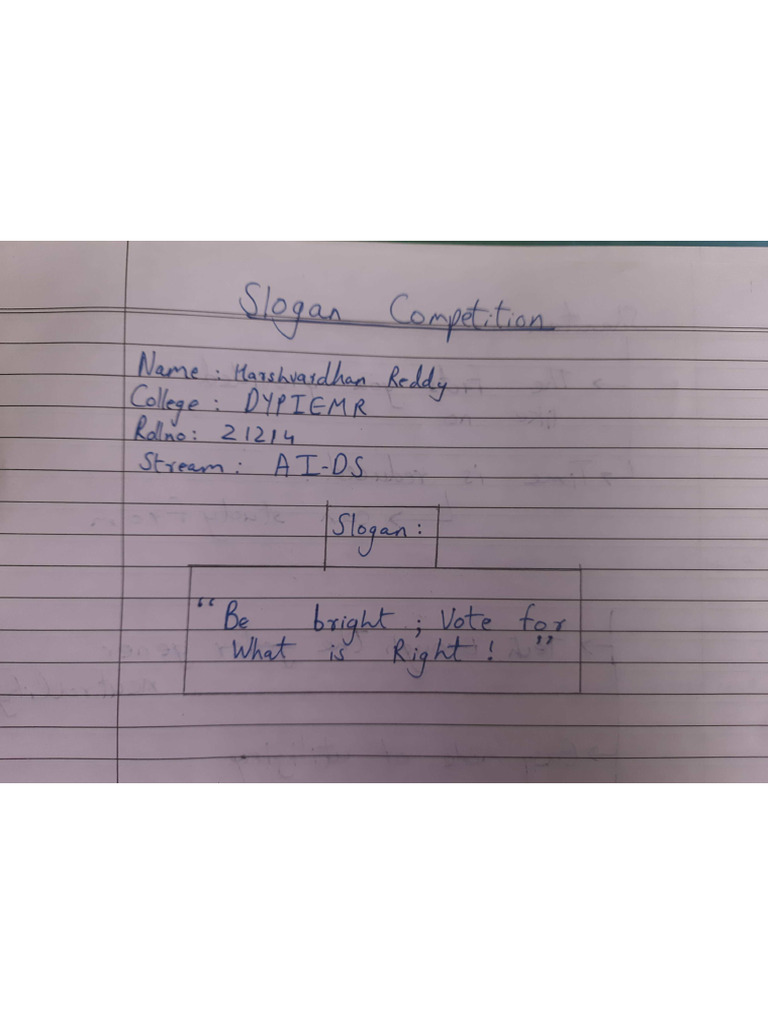 Slogan Competition
Name : Harshvardhan Reddy
College : DYPIEMR
Rollno: 21214
Stream : AI-DS
Slogan :
“Be bright ; Vote for
What is Right ! ”